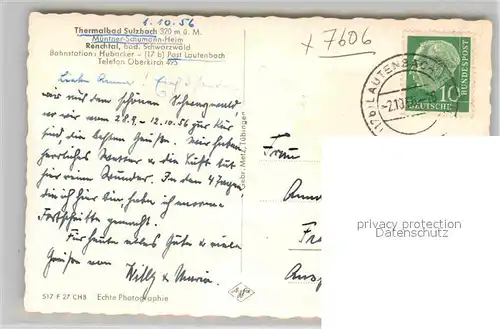 1.10.56
Thermalbad Sulzbach 320 m ü. M.
Müntner-Saumann-Heim
Renchtal, bad. Schwarzwald
Bahnstation: Hubacker - (17 b) Post Lautenbach
Telefon Oberkirch 475
x 7606
Liebe Anna!
wir aus dem schönen Schwarzwald,
wo wir vom 28.9. - 12.10.56 zur Kur
sind, die besten Grüße. Wir haben
herrliches Wetter & die Luft tut
hier Wunder. In den 4 Tagen,
die ich hier bin, habe ich enorme
Fortschritte gemacht.
Für heute alles Gute & viele
Grüße von Willy & Maria.
517 F 27 CHB Echte Photographie
Gebr. Metz, Tübingen
Agfa
(17b) LAUTENBACH
-2.10.
10
DEUTSCHE
BUNDESPOST
Frau
privacy protection
Datenschutz